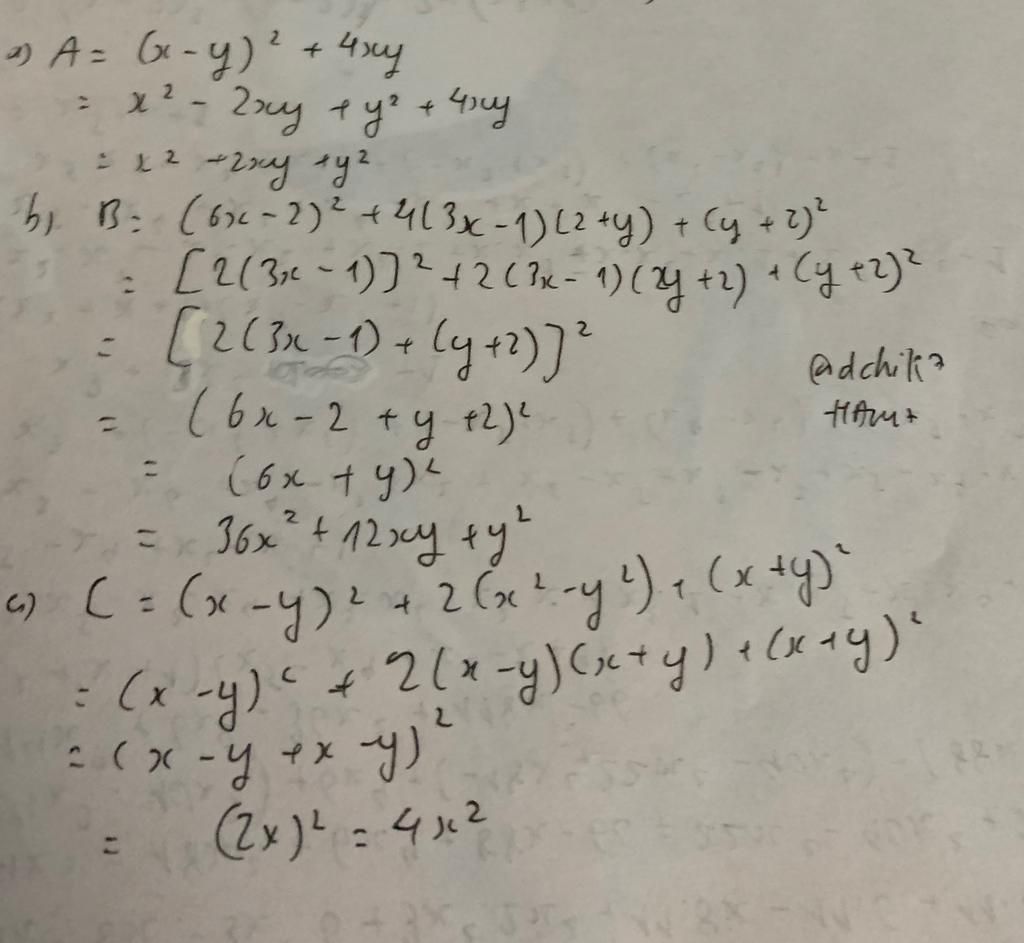 a) A = (x - y)² + 4xy
= x² - 2xy + y² + 4xy
= x² + 2xy + y²
b) B = (6x - 2)² + 4(3x - 1)(2 + y) + (y + 2)²
= [2(3x - 1)]² + 2(3x - 1)(2y + 2) + (y + 2)²
= [2(3x - 1) + (y + 2)]²
= (6x - 2 + y + 2)²
= (6x + y)²
= 36x² + 12xy + y²
c) C = (x - y)² + 2(x² - y²) + (x + y)²
= (x - y)² + 2(x - y)(x + y) + (x + y)²
= (x - y + x - y)²
= (2x)² = 4x²